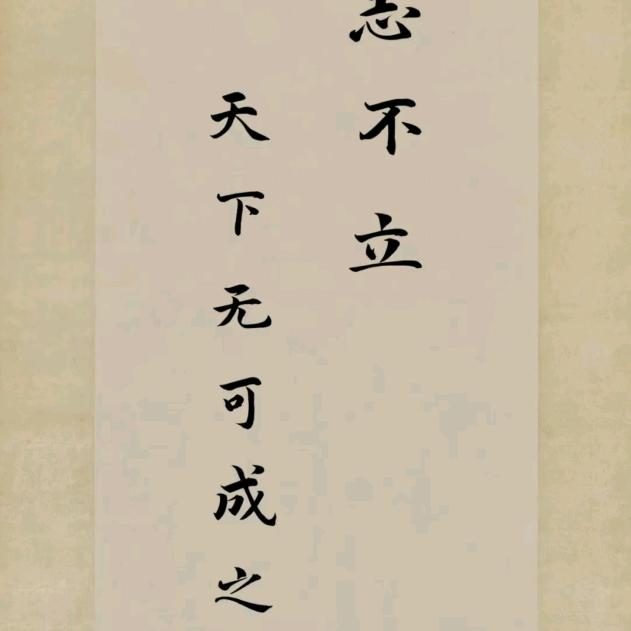 志不立
天下无可成之